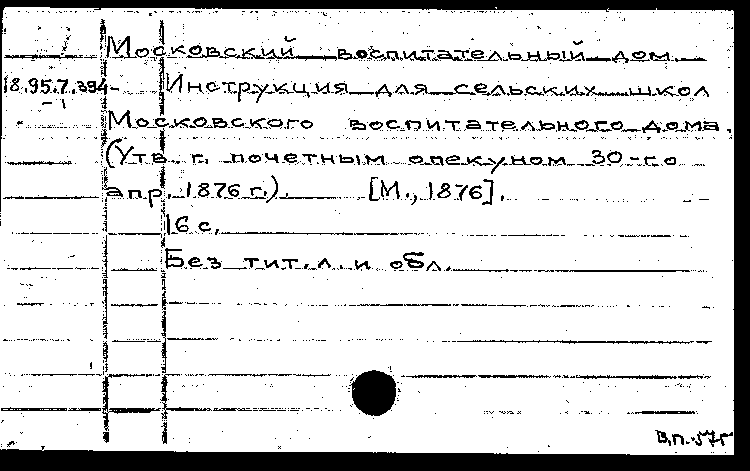 Московский воспитательный дом.
18.95.7.394-1 Инструкция для сельских школ
Московского воспитательного дома.
(Утв. г. почетным опекуном 30-го
апр. 1876 г.). [М., 1876].
16 с.
Без тит. л. и обл.
В.п.